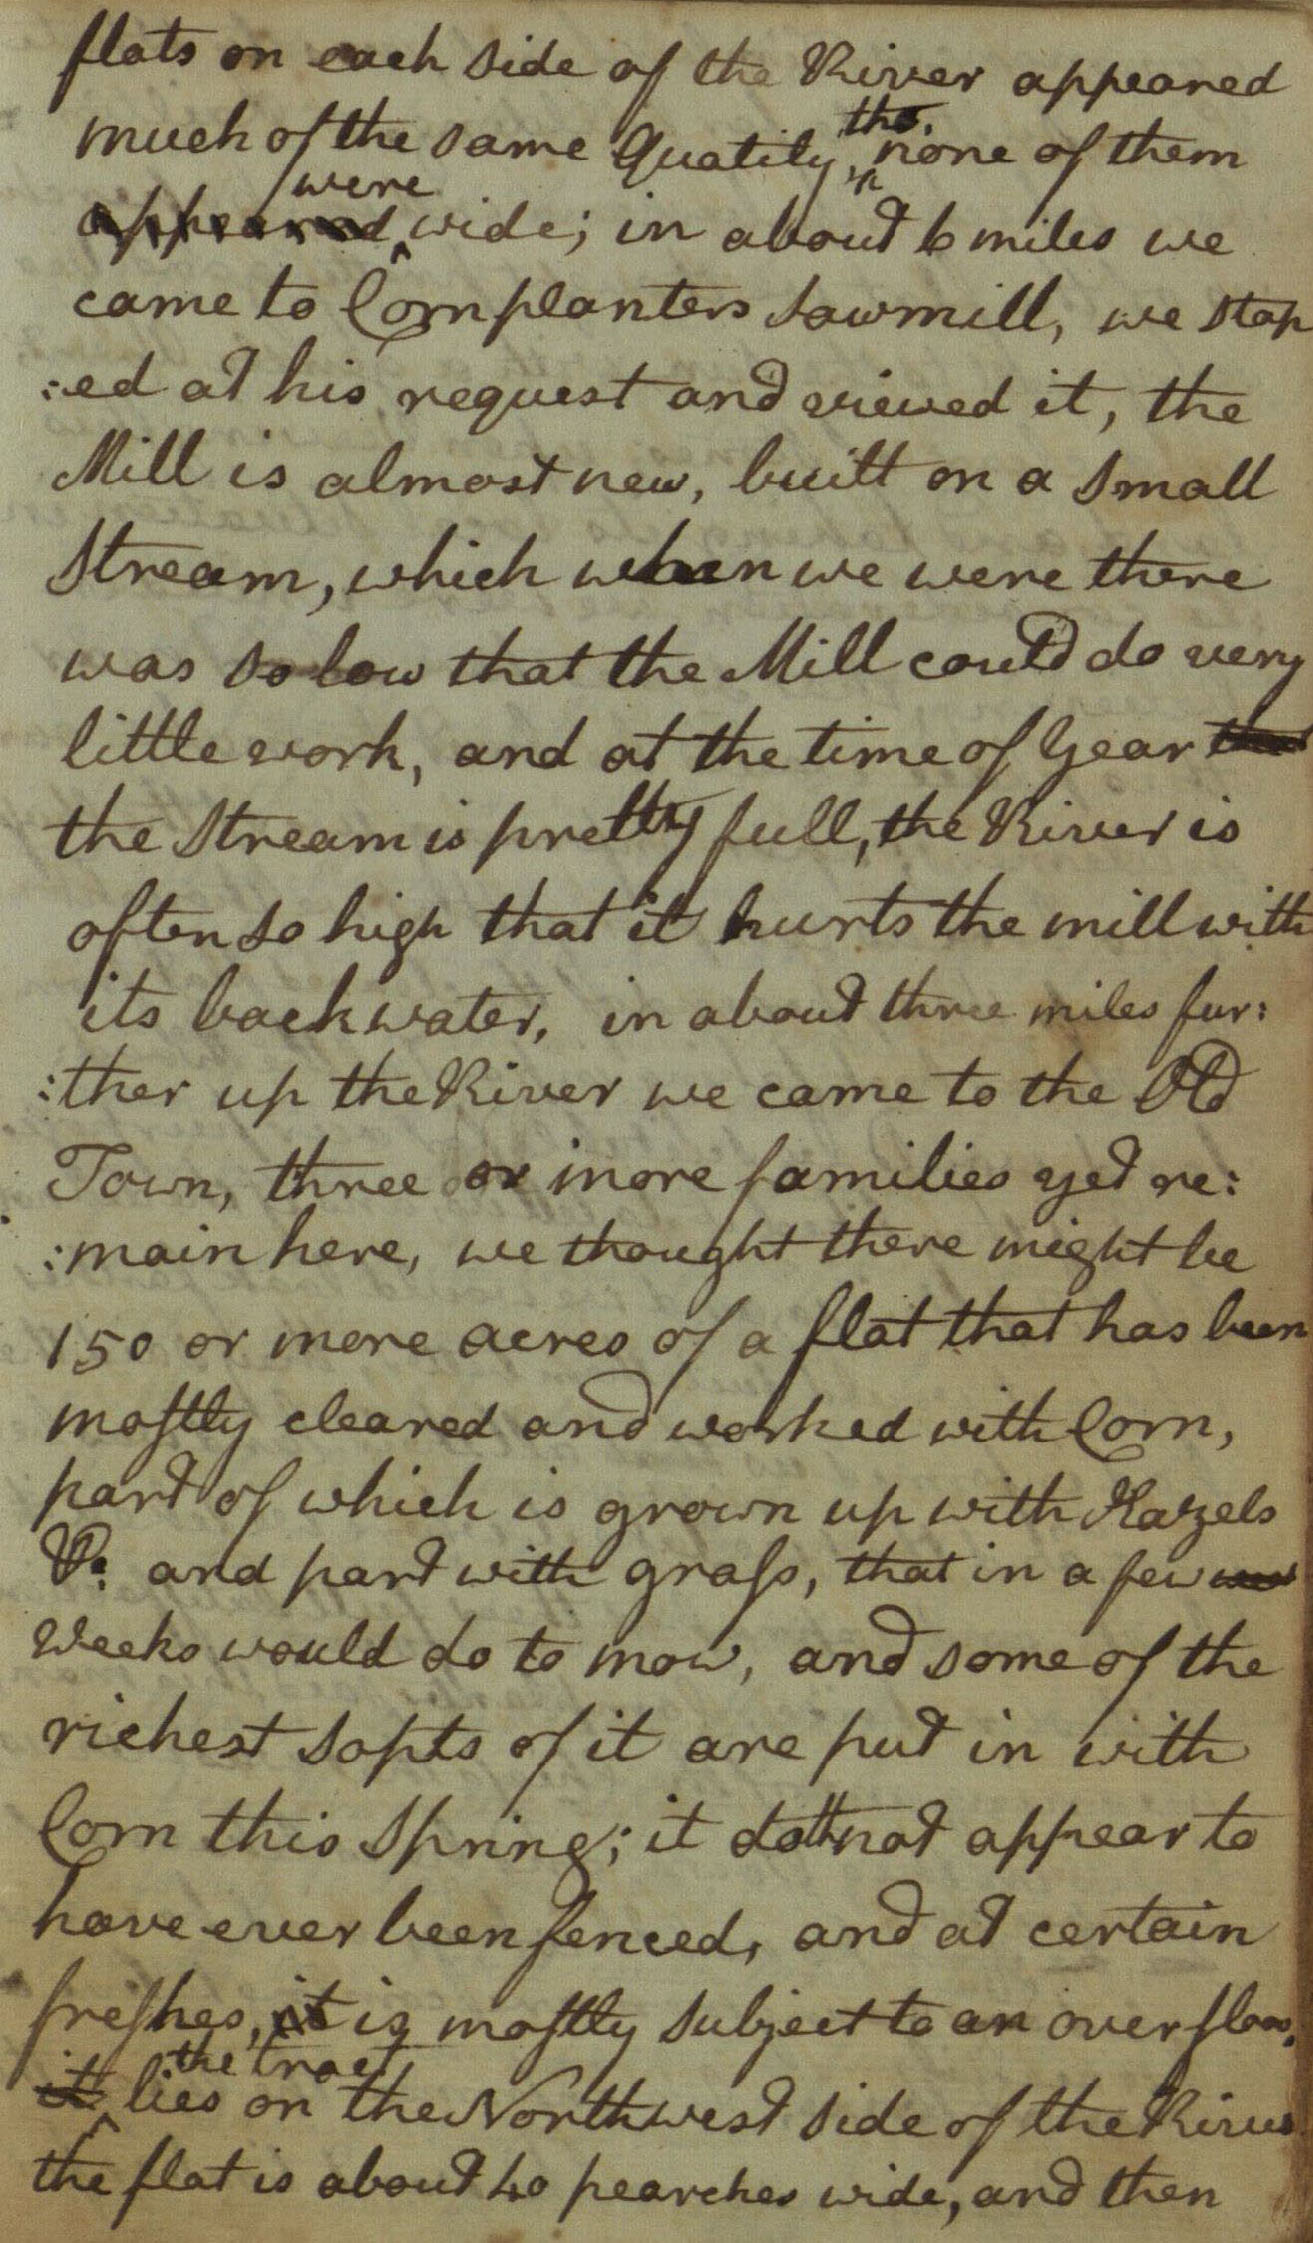 flats on each side of the River appeared
much of the same Quality, tho. none of them
appeared were wide; in about 6 miles we
came to Cornplanters Sawmill, we stop
:ed at his request and viewed it, the
Mill is almost new, built on a Small
Stream, which when we were there
was so low that the Mill could do very
little work, and at the time of Year
the Stream is pretty full, the River is
often so high that it hurts the mill with
its backwater, in about three miles fur:
:ther up the River we came to the Old
Town, three or more families yet re:
:main here, we thought there might be
150 or more acres of a flat that has been
mostly cleared and worked with Corn,
part of which is grown up with Hazels
&c. and part with grass, that in a few
weeks would do to mow, and some of the
richest sopts of it are put in with
Corn this Spring; it doth not appear to
have ever been fenced, and at certain
freshes, it is mostly subject to an overflow.
it the tract lies on the Northwest side of the River
the flat is about 40 pearches wide, and then